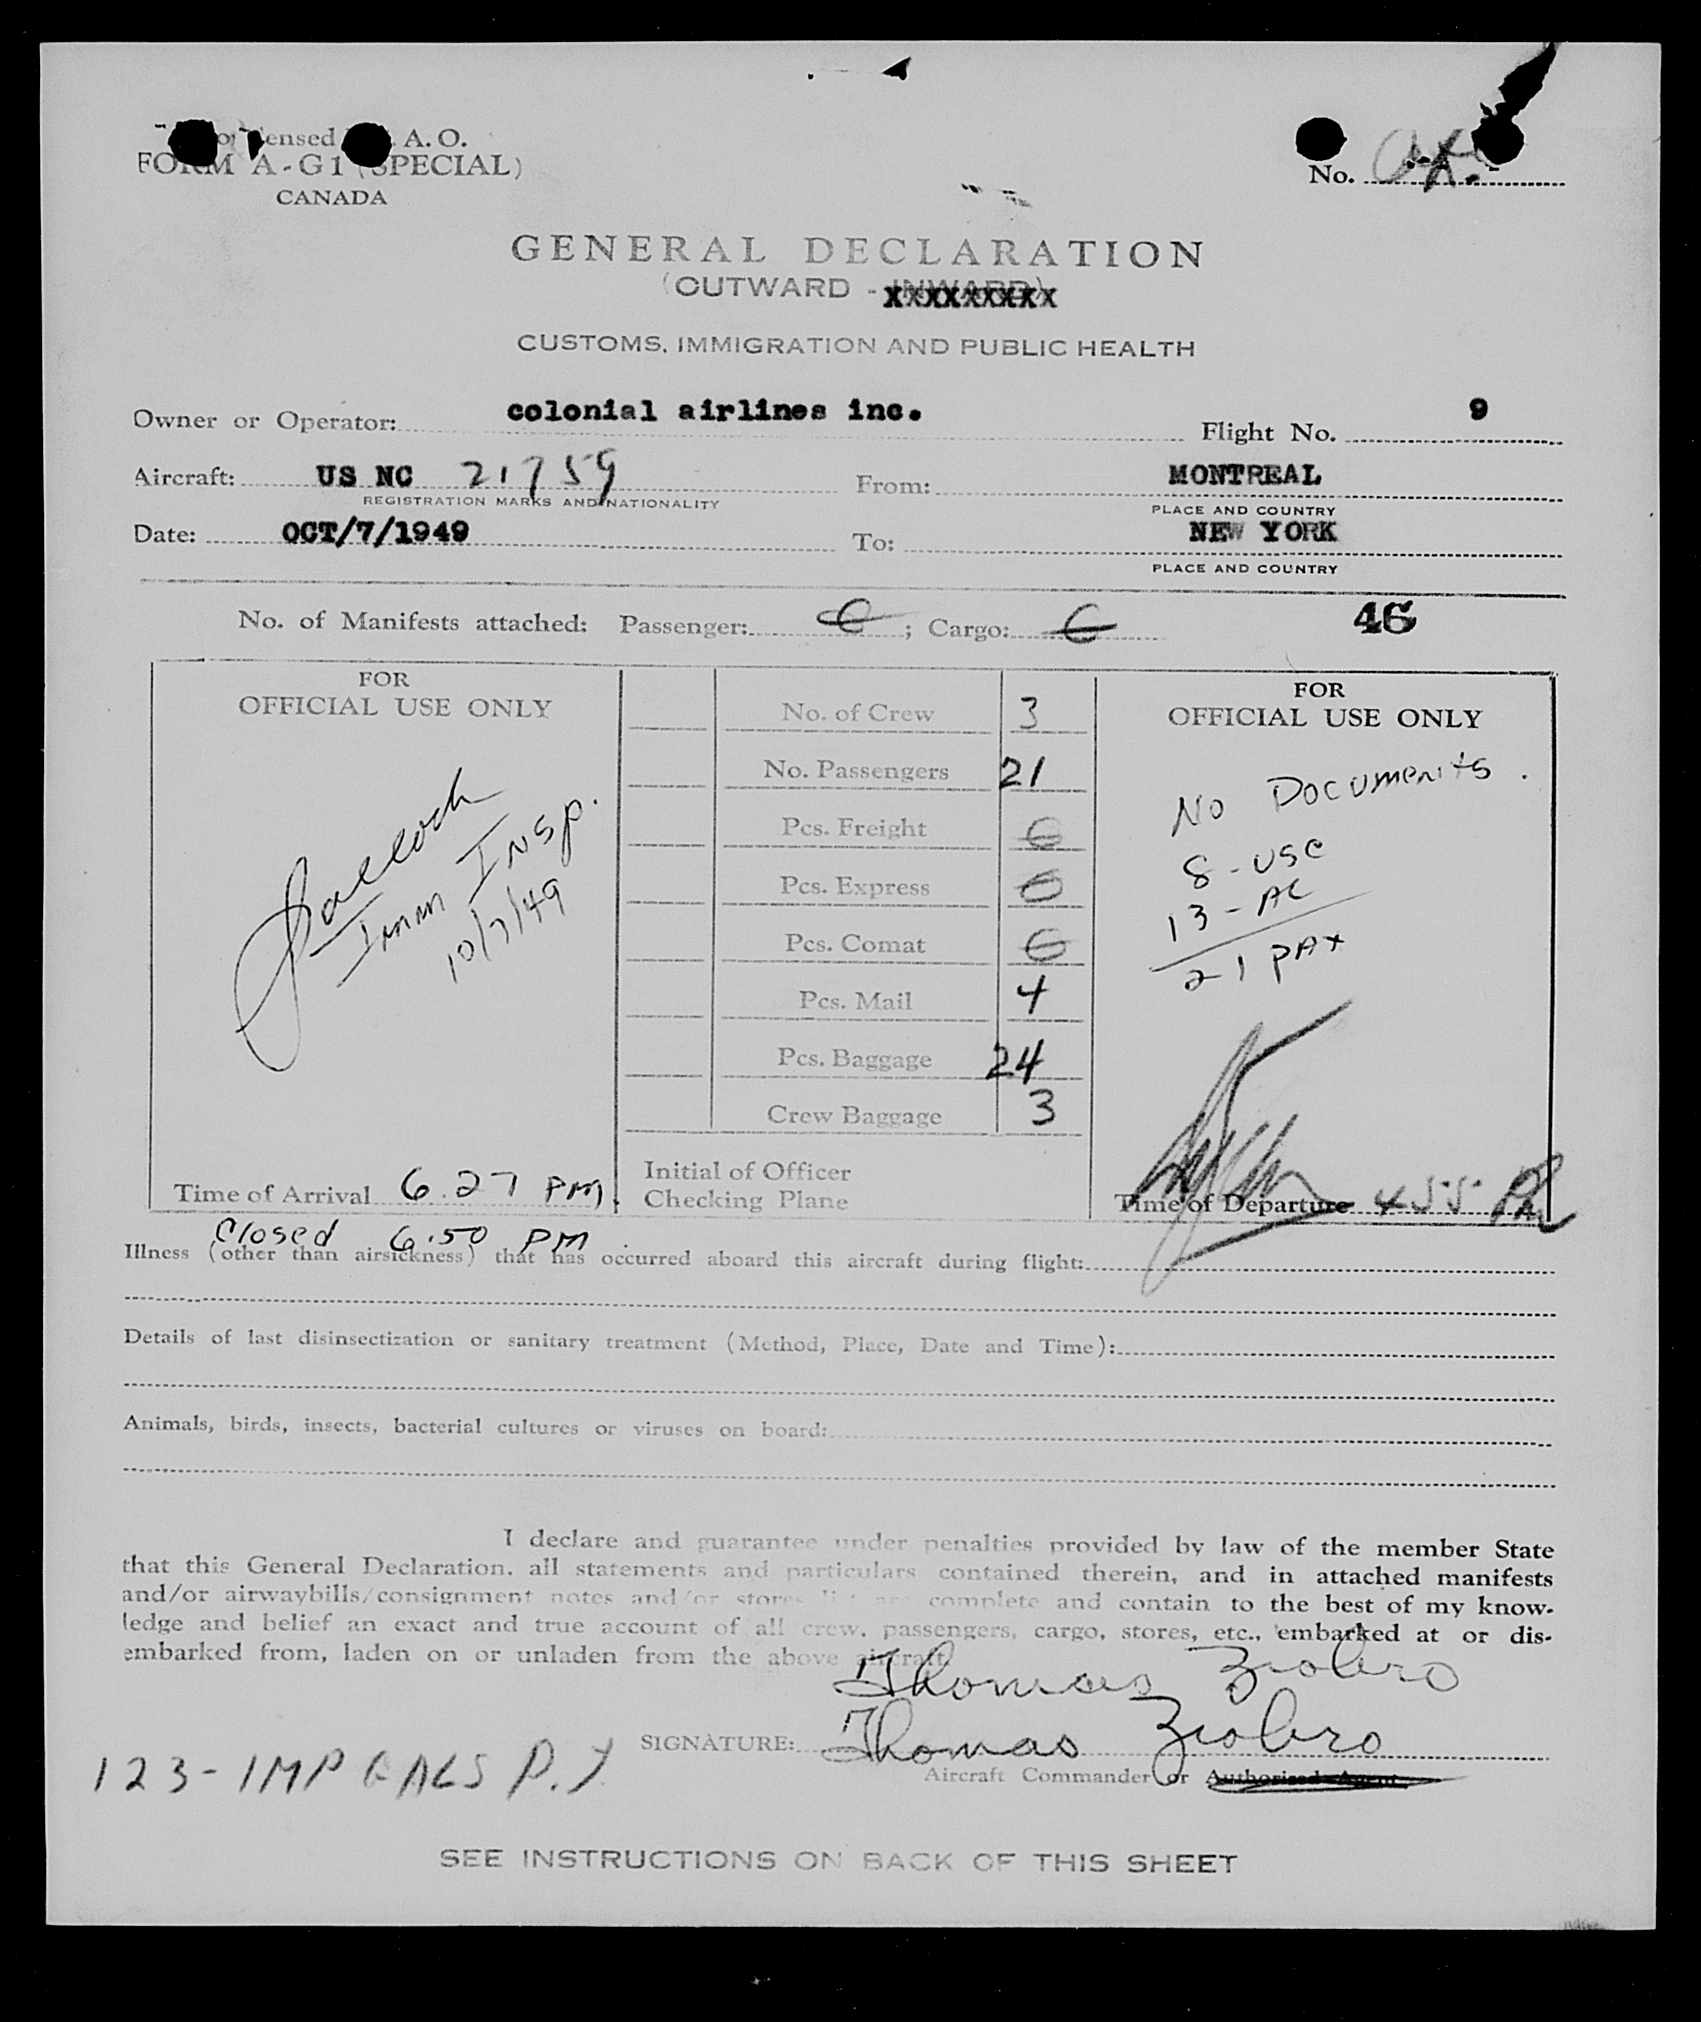 ensed A. O.
FORM A-G1 (SPECIAL)
CANADA
No.
GENERAL DECLARATION
(OUTWARD - INWARD)
CUSTOMS, IMMIGRATION AND PUBLIC HEALTH
Owner or Operator: colonial airlines inc. Flight No. 9
Aircraft: US NC 21759 From: MONTREAL
REGISTRATION MARKS AND NATIONALITY PLACE AND COUNTRY
Date: OCT/7/1949 To: NEW YORK
PLACE AND COUNTRY
No. of Manifests attached: Passenger: ; Cargo: 46
FOR
OFFICIAL USE ONLY
Imm Insp.
10/7/49
Time of Arrival 6.27 PM.
Closed 6.50 PM
No. of Crew 3
No. Passengers 21
Pcs. Freight
Pcs. Express
Pcs. Comat
Pcs. Mail 4
Pcs. Baggage 24
Crew Baggage 3
Initial of Officer
Checking Plane
FOR
OFFICIAL USE ONLY
No Documents.
8 - USC
13 - AL
21 PAX
Time of Departure 455 PM
Illness (other than airsickness) that has occurred aboard this aircraft during flight:
Details of last disinsectization or sanitary treatment (Method, Place, Date and Time):
Animals, birds, insects, bacterial cultures or viruses on board:
I declare and guarantee under penalties provided by law of the member State
that this General Declaration, all statements and particulars contained therein, and in attached manifests
and/or airwaybills/consignment notes and/or stores list are complete and contain to the best of my know-
ledge and belief an exact and true account of all crew, passengers, cargo, stores, etc., embarked at or dis-
embarked from, laden on or unladen from the above aircraft.
Thomas Ziobro
SIGNATURE: Thomas Ziobro
Aircraft Commander or Authorized Agent.
123-IMP GALS P.Y
SEE INSTRUCTIONS ON BACK OF THIS SHEET